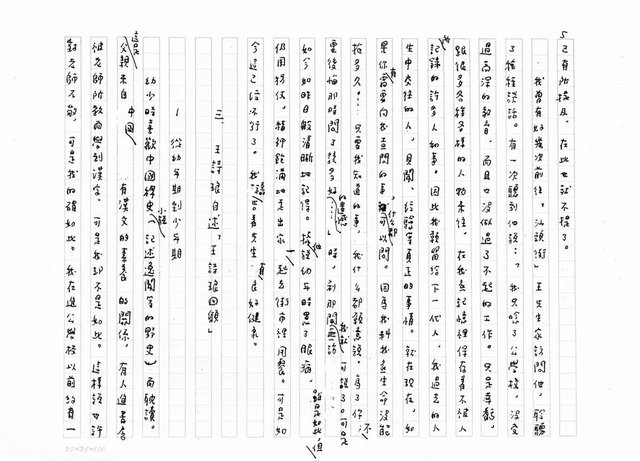 5已有所提及，在此也就不提了。
我曾有好幾次前往「汕頭街」王先生家訪問他，聆聽
了種種談話。有一次聽到他說：「我只唸了公學校，沒受
過高深的教育，而且也沒做過了不起的工作。只是喜歡
跟很多各種各樣的人物來往，在我的記憶裡保存着不被人
記錄的許多人和事。因此我願留給下一代人，我過去的人
生中交往的人，見聞、經驗等真正的事情。就在現在，如
果你有需要向我查問的事，什麼都可以問。因為我料我生命沒能
拖多久……只要我知道的事，我什麼都願意說。為了你不
要後悔那時問了該多好……」時，剎那間
如今如昨日般清晰地記得。他幼年時患了眼病，
仍用拐杖，精神飽滿地走出家，一起去街市裡用餐。可是如
今這已經不行了。我禱告着先生有良好健康。
三、王詩琅自述「王詩琅回顧」
1 從幼年期到少年期
幼少時喜歡中國稗史小說（記述逸聞等的野史）而耽讀。
這是父親來自中國，有漢文的素養的關係，有人進書房
被老師所教而學到漢字。可是我却不是如此。這樣說也許
對老師不敬，可是我的確如此。我在進公學校以前約有一
20×25=500